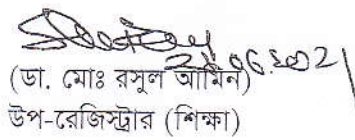 28.06.2021
(ডা. মোঃ রসুল আমিন)
উপ-রেজিস্ট্রার (শিক্ষা)